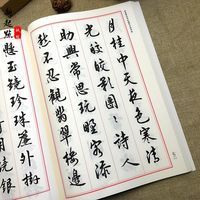 月挂中天夜色寒清
光皎皎影團團詩人
助興常思玩野客添
愁不忍觀翡翠樓邊
懸玉鏡珍珠簾外掛
何用燒銀
起點